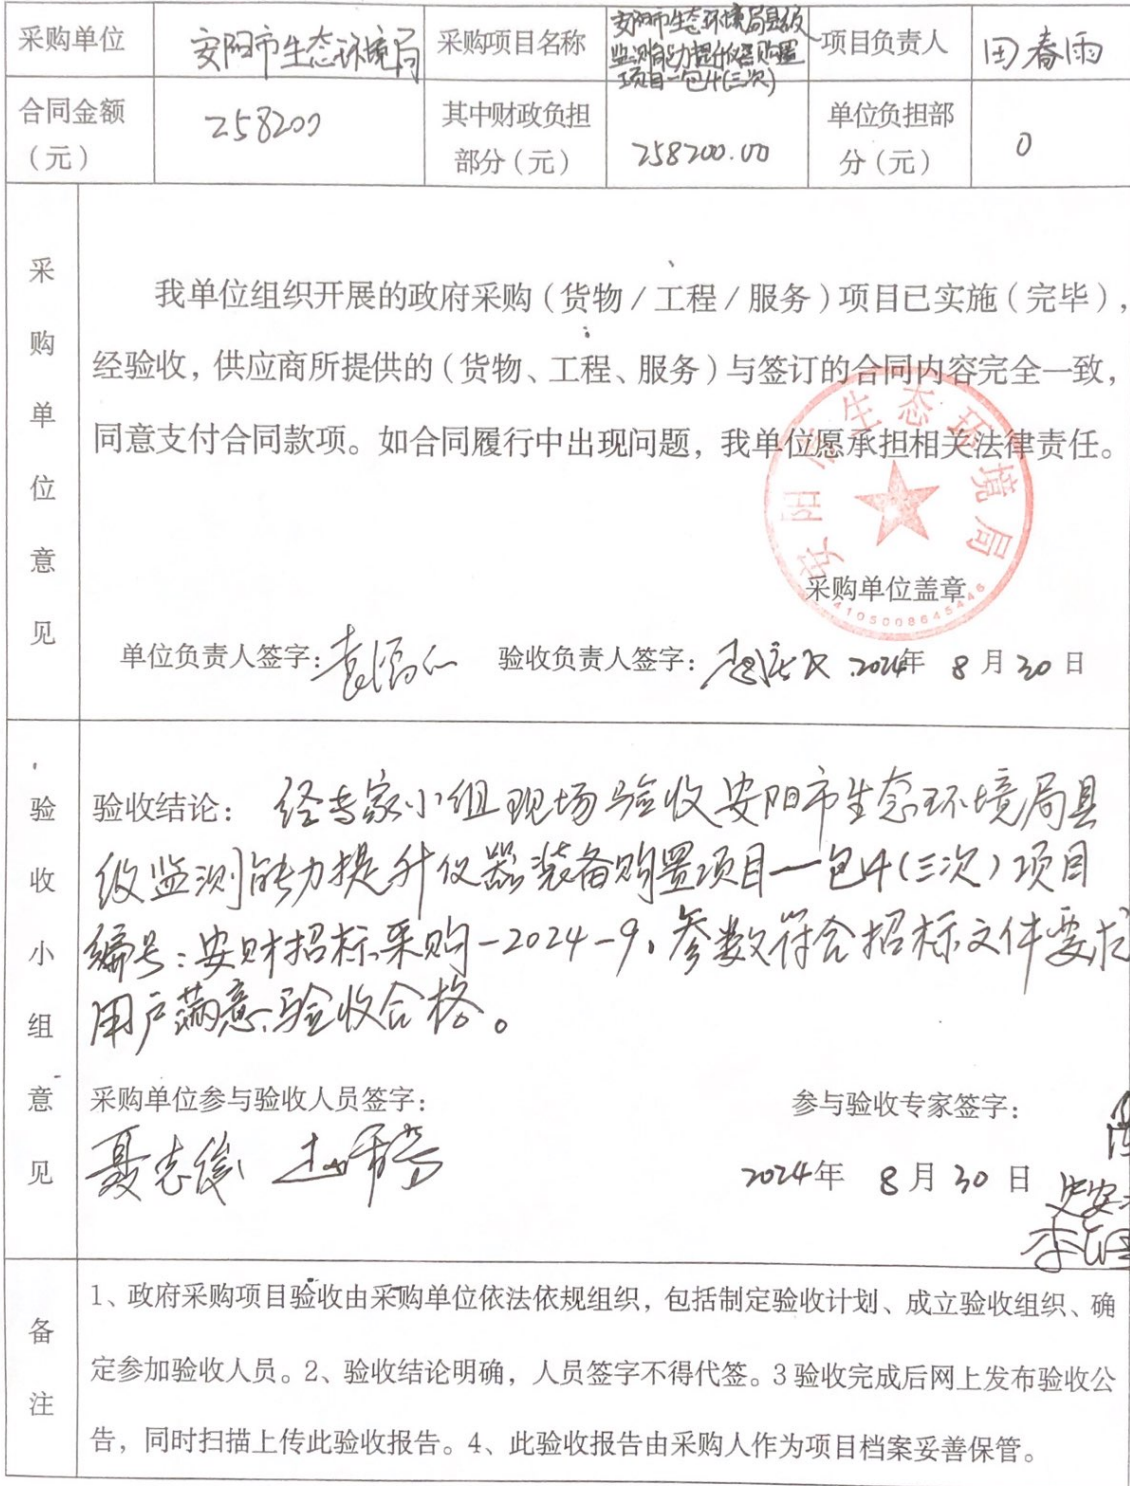 采购单位 安阳市生态环境局 采购项目名称 安阳市生态环境局县级 项目负责人 田春雨
监测能力提升仪器购置
项目-包4(三次)
合同金额 258200 其中财政负担 258200.00 单位负担部 0
（元） 部分（元） 分（元）
采购单位意见
我单位组织开展的政府采购（货物/工程/服务）项目已实施（完毕），
经验收，供应商所提供的（货物、工程、服务）与签订的合同内容完全一致，
同意支付合同款项。如合同履行中出现问题，我单位愿承担相关法律责任。
安阳市生态环境局
采购单位盖章
4105008645446
单位负责人签字： 验收负责人签字： 2024年 8月30日
验收小组意见
验收结论： 经专家小组现场验收安阳市生态环境局县
级监测能力提升仪器装备购置项目一包4(三次)项目
编号:安财招标采购-2024-9,参数符合招标文件要求
用户满意、验收合格。
采购单位参与验收人员签字： 参与验收专家签字：
聂志俊 2024年 8月30日
备注
1、政府采购项目验收由采购单位依法依规组织，包括制定验收计划、成立验收组织、确
定参加验收人员。2、验收结论明确，人员签字不得代签。3验收完成后网上发布验收公
告，同时扫描上传此验收报告。4、此验收报告由采购人作为项目档案妥善保管。